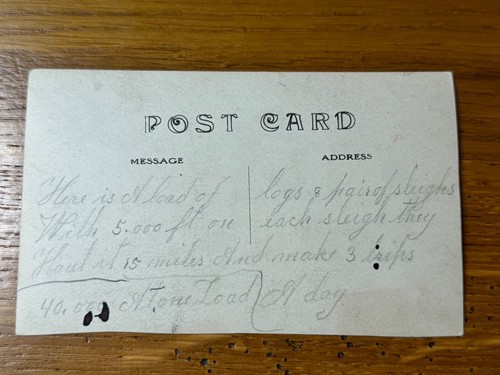 POST CARD
MESSAGE
ADDRESS
Here is A load of logs 8 pair of sleighs
With 5.000 ft on each sleigh they
Haul it 15 miles And make 3 trips
40.000 At one Load A day